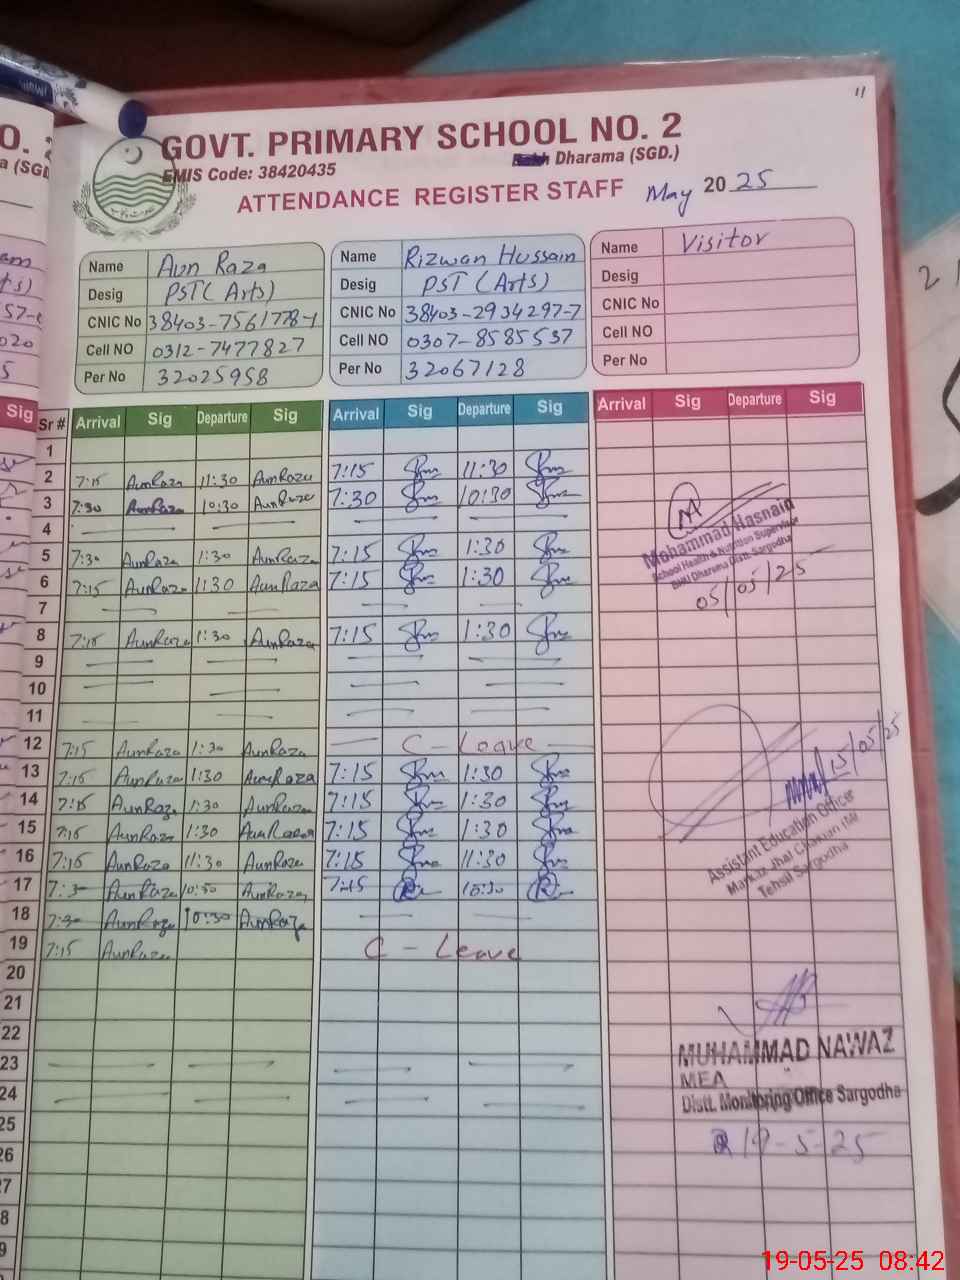 11
GOVT. PRIMARY SCHOOL NO. 2
EMIS Code: 38420435 Dharama (SGD.)
ATTENDANCE REGISTER STAFF May 2025
Name Aun Raza
Desig PST (Arts)
CNIC No 38403-7561778-1
Cell NO 0312-7477827
Per No 32025958
Name Rizwan Hussain
Desig PST (Arts)
CNIC No 38403-2934297-7
Cell NO 0307-8585537
Per No 32067128
Name Visitor
Desig
CNIC No
Cell NO
Per No
Sr # Arrival Sig Departure Sig Arrival Sig Departure Sig Arrival Sig Departure Sig
1
2 7:15 AunRaza 11:30 AunRaza 7:15 11:30
3 7:30 AunRaza 10:30 AunRaza 7:30 10:30
4
5 7:30 AunRaza 1:30 AunRaza 7:15 1:30
6 7:15 AunRaza 1:30 AunRaza 7:15 1:30
7
8 7:15 AunRaza 1:30 AunRaza 7:15 1:30
9
10
11
12 7:15 AunRaza 1:30 AunRaza C - Leave
13 7:15 AunRaza 1:30 AunRaza 7:15 1:30
14 7:15 AunRaza 1:30 AunRaza 7:15 1:30
15 7:15 AunRaza 1:30 AunRaza 7:15 1:30
16 7:15 AunRaza 11:30 AunRaza 7:15 11:30
17 7:30 AunRaza 10:30 AunRaza 7:15 10:30
18 7:30 AunRaza 10:30 AunRaza
19 7:15 AunRaza C - Leave
20
21
22
23
24
25
26
27
28
29
Mohammad Hasnain
School Health & Nutrition Supervisor
BHU Dharama Distt. Sargodha
05/05/25
15/05/25
Assistant Education Officer
Markaz Jhal Chakian (M)
Tehsil Sargodha
MUHAMMAD NAWAZ
MEA
Distt. Monitoring Office Sargodha
19-5-25
19-05-25 08:42